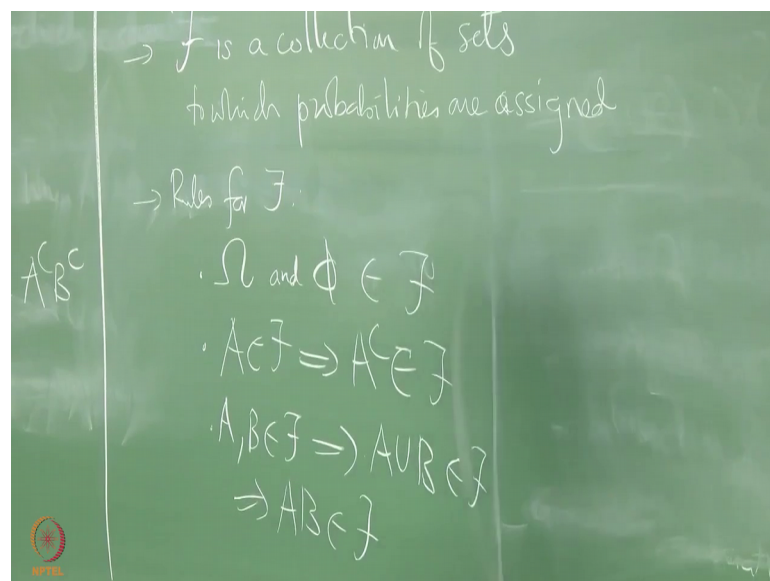 → F is a collection of sets
to which probabilities are assigned
→ Rules for F.
· Ω and Φ ∈ F
AᶜBᶜ
· A∈F ⇒ Aᶜ∈F
· A,B∈F ⇒ A∪B∈F
⇒ AB∈F
NPTEL